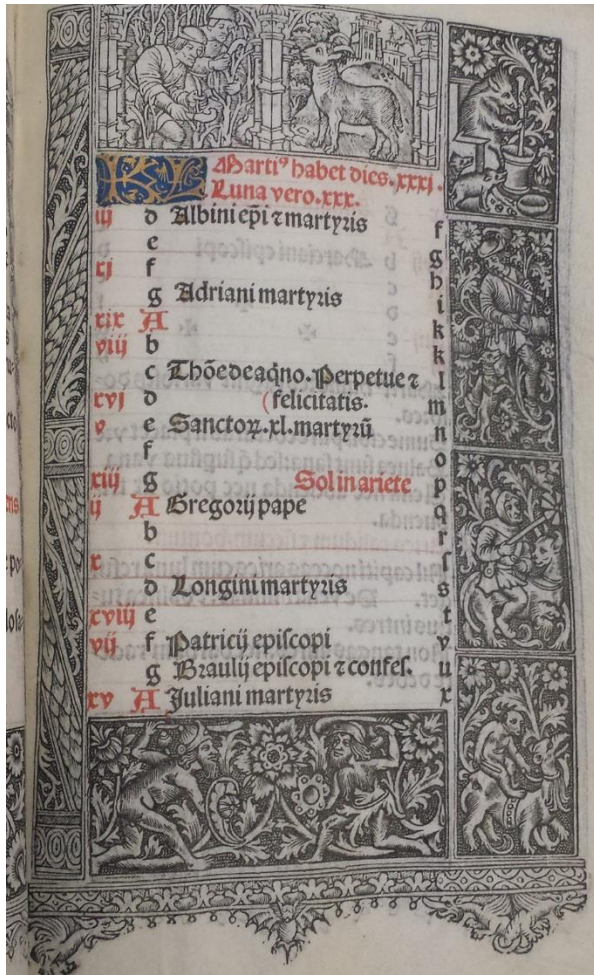 KL Marti⁹ habet dies.xxxj.
Luna vero.xxx.
iij d Albini ep̄i ⁊ martyris f
e g
xj f h
g Adriani martyris i
xix A k
viij b k
c Thōe de aq̄no. Perpetue ⁊ l
xvj d (felicitatis. m
v e Sanctoꝝ.xl.martyrū n
f o
xiij g Sol in ariete p
ij A Gregorij pape q
b r
x c ſ
d Longini martyris s
xviij e t
vij f Patricij episcopi v
g Braulij episcopi ⁊ confeſ. u
xv A Juliani martyris x